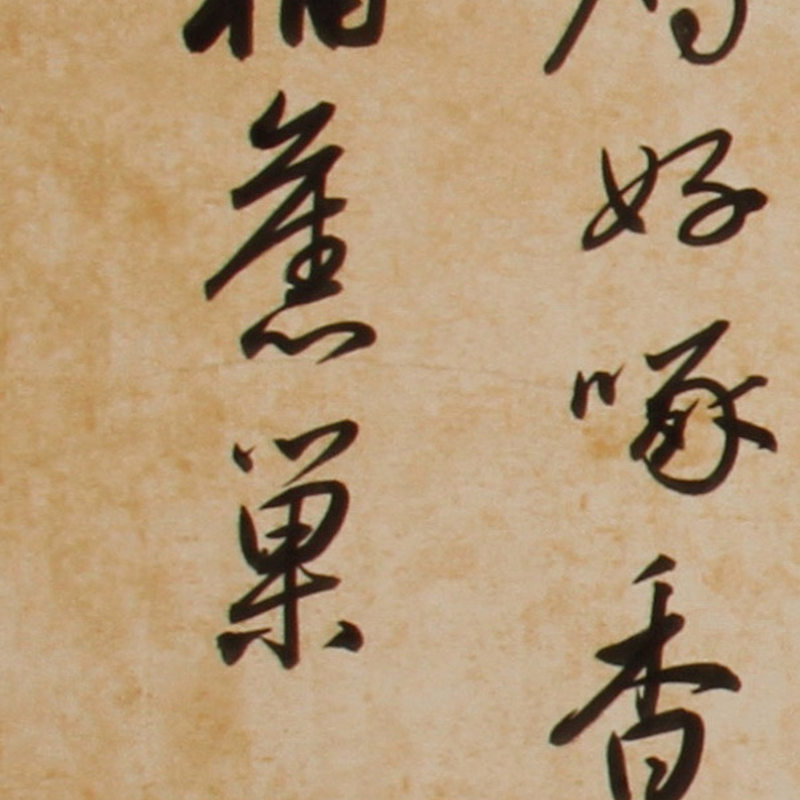 好啄香
舊巢